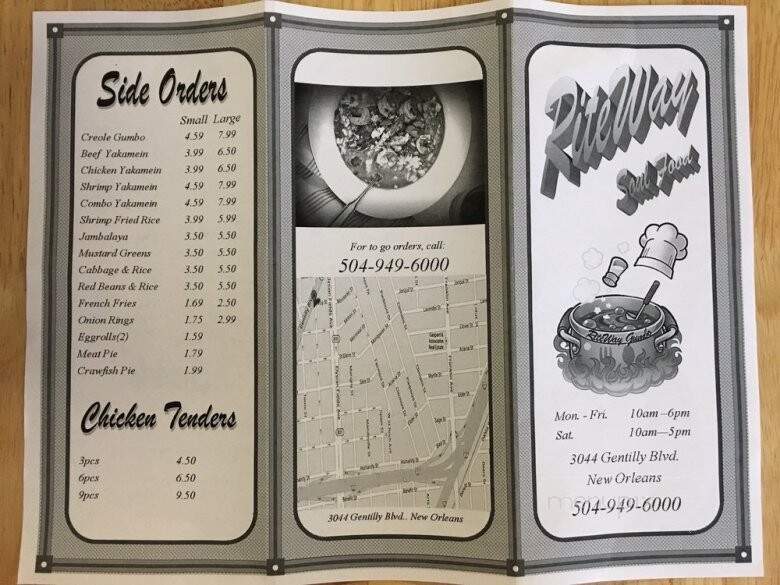 Side Orders
Small Large
Creole Gumbo 4.59 7.99
Beef Yakamein 3.99 6.50
Chicken Yakamein 3.99 6.50
Shrimp Yakamein 4.59 7.99
Combo Yakamein 4.59 7.99
Shrimp Fried Rice 3.99 5.99
Jambalaya 3.50 5.50
Mustard Greens 3.50 5.50
Cabbage & Rice 3.50 5.50
Red Beans & Rice 3.50 5.50
French Fries 1.69 2.50
Onion Rings 1.75 2.99
Eggrolls(2) 1.59
Meat Pie 1.79
Crawfish Pie 1.99
Chicken Tenders
3pcs 4.50
6pcs 6.50
9pcs 9.50
For to go orders, call:
504-949-6000
3044 Gentilly Blvd.. New Orleans
RiteWay
Soul Food
RiteWay Gumbo
Mon. - Fri. 10am –6pm
Sat. 10am—5pm
3044 Gentilly Blvd.
New Orleans
504-949-6000